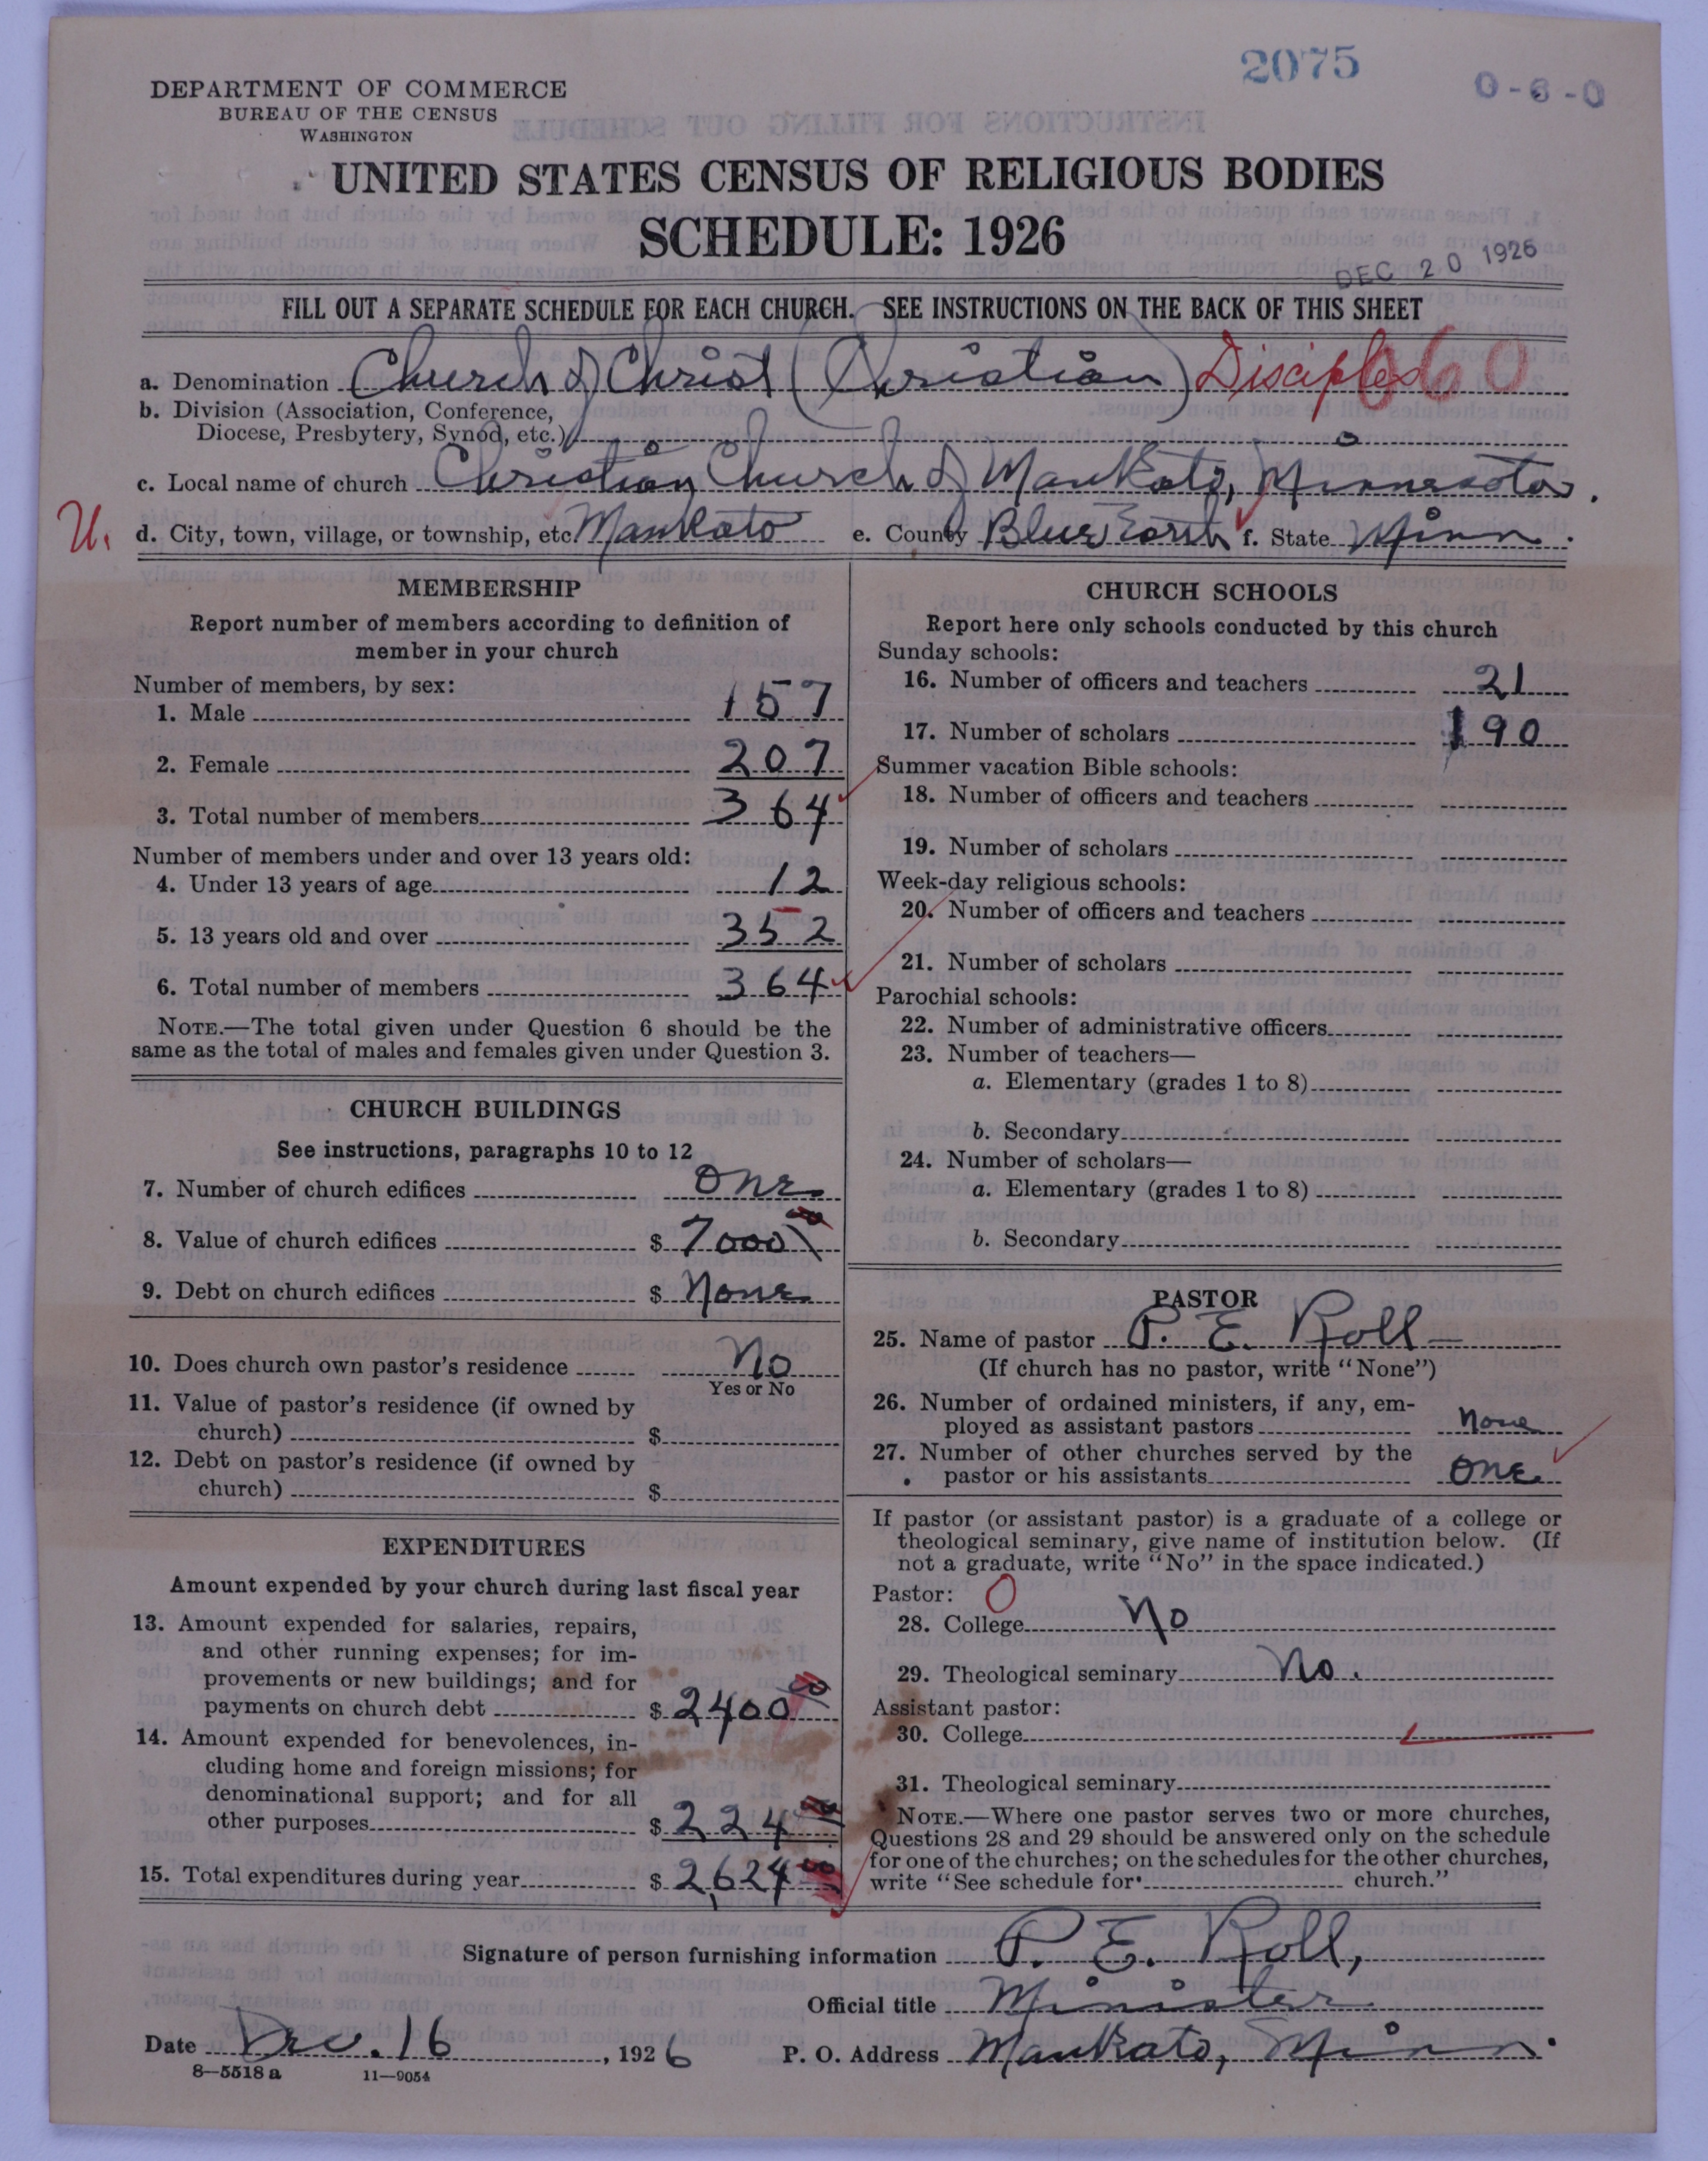 2075
0-6-0
DEPARTMENT OF COMMERCE
BUREAU OF THE CENSUS
WASHINGTON
UNITED STATES CENSUS OF RELIGIOUS BODIES
SCHEDULE: 1926
DEC 20 1926
FILL OUT A SEPARATE SCHEDULE FOR EACH CHURCH. SEE INSTRUCTIONS ON THE BACK OF THIS SHEET
a. Denomination Church of Christ (Christian) Disciples 60
b. Division (Association, Conference,
Diocese, Presbytery, Synod, etc.)
c. Local name of church Christian Church of Mankato, Minnesota.
U. d. City, town, village, or township, etc. Mankato e. County Blue Earth f. State Minn.
MEMBERSHIP
Report number of members according to definition of
member in your church
Number of members, by sex:
1. Male 157
2. Female 207
3. Total number of members 364
Number of members under and over 13 years old:
4. Under 13 years of age 12
5. 13 years old and over 352
6. Total number of members 364
NOTE.—The total given under Question 6 should be the
same as the total of males and females given under Question 3.
CHURCH BUILDINGS
See instructions, paragraphs 10 to 12
7. Number of church edifices One
8. Value of church edifices $ 7000 00
9. Debt on church edifices $ None
10. Does church own pastor's residence No
Yes or No
11. Value of pastor's residence (if owned by
church) $
12. Debt on pastor's residence (if owned by
church) $
EXPENDITURES
Amount expended by your church during last fiscal year
13. Amount expended for salaries, repairs,
and other running expenses; for im-
provements or new buildings; and for
payments on church debt $ 2400 00
14. Amount expended for benevolences, in-
cluding home and foreign missions; for
denominational support; and for all
other purposes $ 224
15. Total expenditures during year $ 2,624 00
CHURCH SCHOOLS
Report here only schools conducted by this church
Sunday schools:
16. Number of officers and teachers 21
17. Number of scholars 190
Summer vacation Bible schools:
18. Number of officers and teachers
19. Number of scholars
Week-day religious schools:
20. Number of officers and teachers
21. Number of scholars
Parochial schools:
22. Number of administrative officers
23. Number of teachers—
a. Elementary (grades 1 to 8)
b. Secondary
24. Number of scholars—
a. Elementary (grades 1 to 8)
b. Secondary
PASTOR
25. Name of pastor P. E. Roll
(If church has no pastor, write "None")
26. Number of ordained ministers, if any, em-
ployed as assistant pastors None
27. Number of other churches served by the
pastor or his assistants One
If pastor (or assistant pastor) is a graduate of a college or
theological seminary, give name of institution below. (If
not a graduate, write "No" in the space indicated.)
Pastor: 0
28. College No
29. Theological seminary No.
Assistant pastor:
30. College
31. Theological seminary
NOTE.—Where one pastor serves two or more churches,
Questions 28 and 29 should be answered only on the schedule
for one of the churches; on the schedules for the other churches,
write "See schedule for church."
Signature of person furnishing information P. E. Roll,
Official title Minister
Date Dec. 16, 1926 P. O. Address Mankato, Minn.
8—5518 a 11—9054